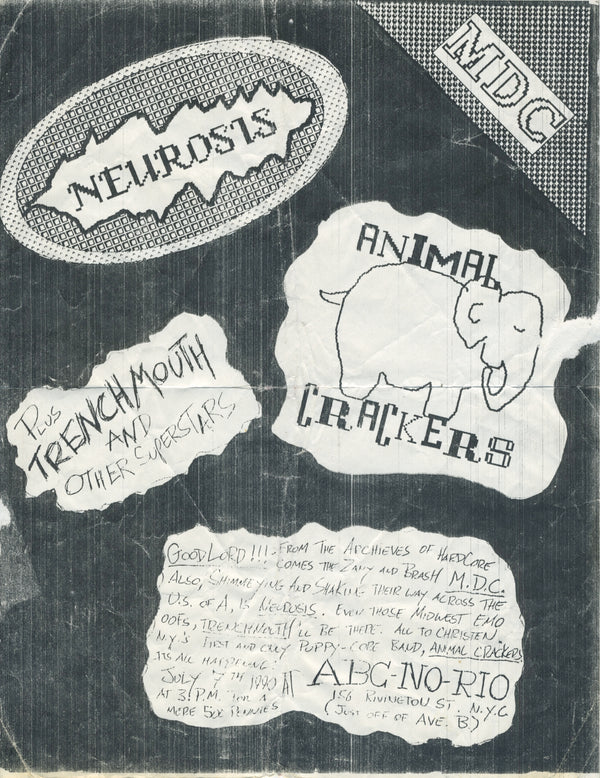 NEUROSIS
MDC
ANIMAL
CRACKERS
PLUS
TRENCHMOUTH
AND
OTHER SUPERSTARS
GOOD LORD!!! FROM THE ARCHIEVES OF HARDCORE
COMES THE ZANY AND BRASH M.D.C.
ALSO, SHIMMEYING AND SHAKING THEIR WAY ACROSS THE
U.S. OF A, IS NEUROSIS. EVEN THOSE MIDWEST EMO
OOFS, TRENCHMOUTH'LL BE THERE. ALL TO CHRISTEN
N.Y.'S FIRST AND ONLY PUPPY-CORE BAND, ANIMAL CRACKERS
ITS ALL HAPPENING!
JULY 7TH 1990 AT ABC-NO-RIO
AT 3:P.M. FOR A 156 RIVINGTON ST. N.Y.C
MERE 500 PENNIES (JUST OFF OF AVE. B)